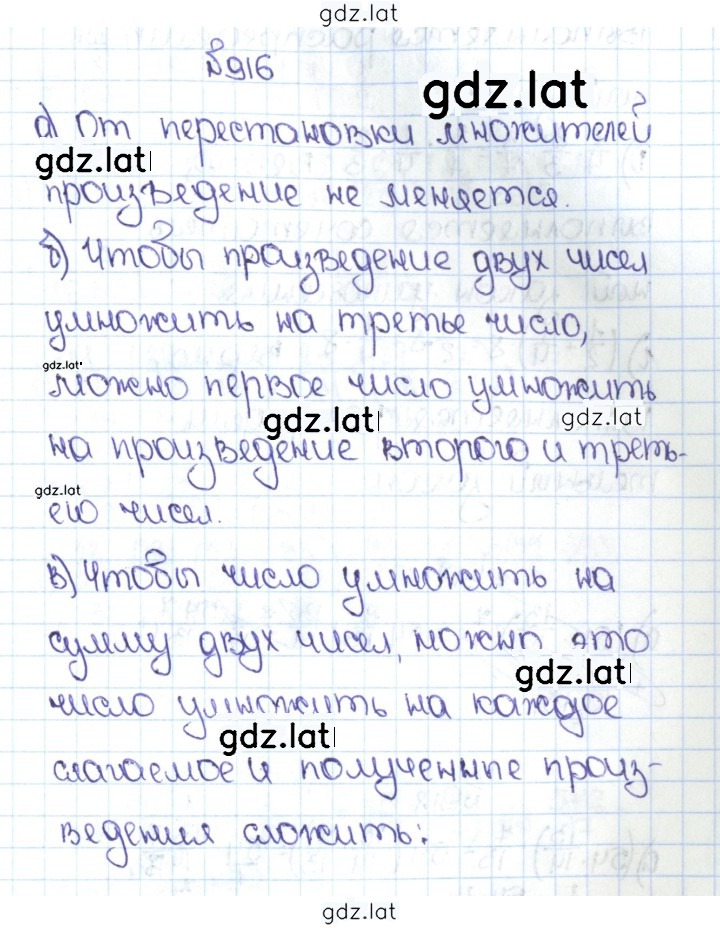 gdz.lat
№916
gdz.lat
а) От перестановки множителей
gdz.lat
произведение не меняется.
б) Чтобы произведение двух чисел
умножить на третье число,
gdz.lat
можно первое число умножить
gdz.lat
gdz.lat
на произведение второго и треть-
gdz.lat
его чисел.
в) Чтобы число умножить на
сумму двух чисел, можно это
gdz.lat
число умножить на каждое
gdz.lat
слагаемое и полученные произ-
ведения сложить:
gdz.lat